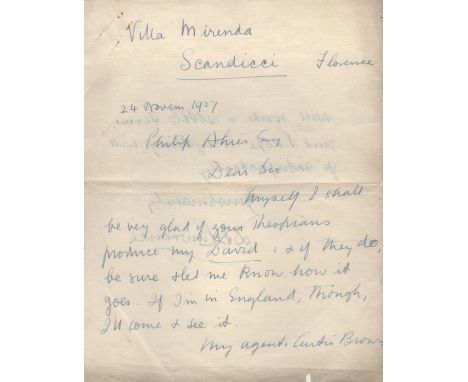 Villa Mirenda
Scandicci Florence
24 Novem 1927
Philip Esq
Dear Sir
Myself I shall
be very glad if your Thespians
produce my David : & if they do,
be sure & let me know how it
goes. If I'm in England, though,
I'll come & see it.
My agents Curtis Brown